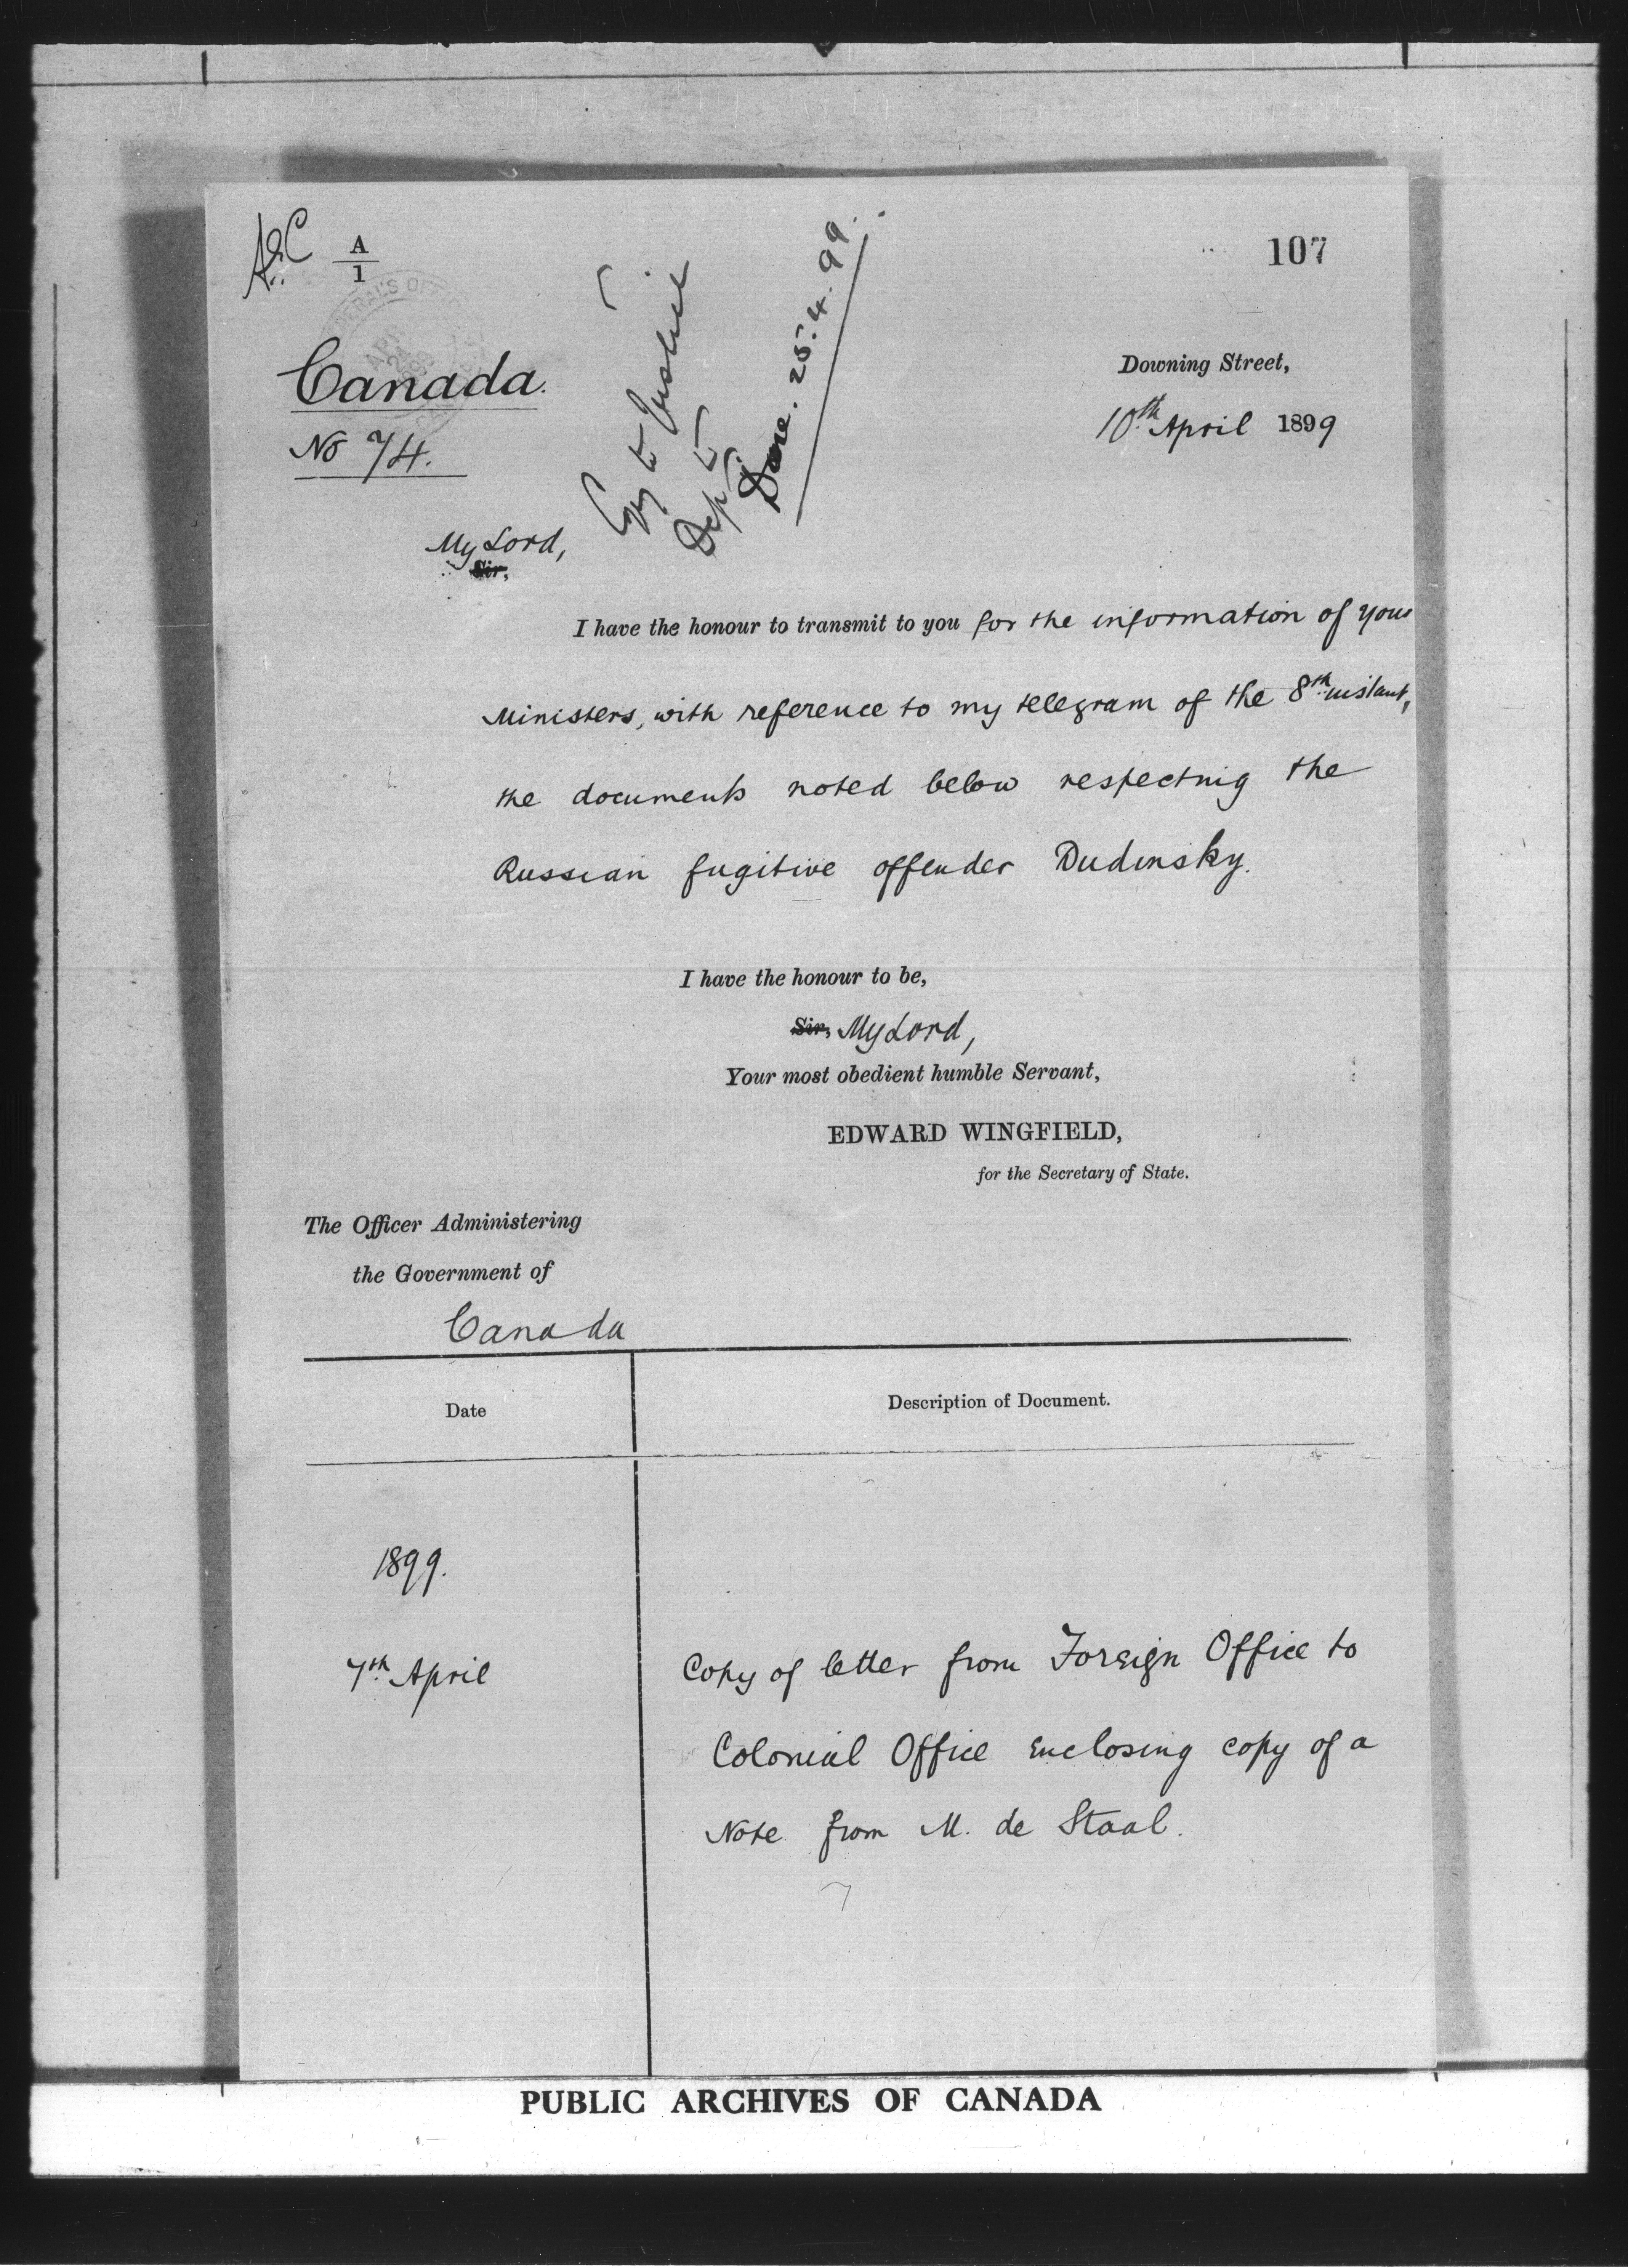 A
1
107
Canada.
No 74.
Copy to Justice
Dept
Done. 25.4.99.
Downing Street,
10th April 1899
My Lord,
Sir,
I have the honour to transmit to you for the information of your
Ministers, with reference to my telegram of the 8th instant,
the documents noted below respecting the
Russian fugitive offender Dudinsky.
I have the honour to be,
Sir, My Lord,
Your most obedient humble Servant,
EDWARD WINGFIELD,
for the Secretary of State.
The Officer Administering
the Government of
Canada
Date
Description of Document.
1899.
7th April
Copy of letter from Foreign Office to
Colonial Office enclosing copy of a
Note from M. de Staal.
PUBLIC ARCHIVES OF CANADA